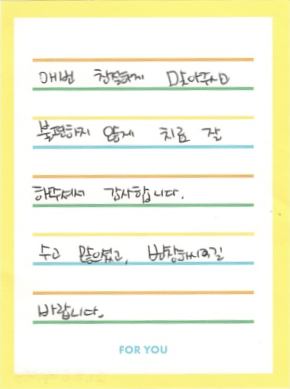 매번 친절하게 맞아주시고
불편하지 않게 치료 잘
해주셔서 감사합니다.
수고 많으셨고, 번창하시길
바랍니다.
FOR YOU